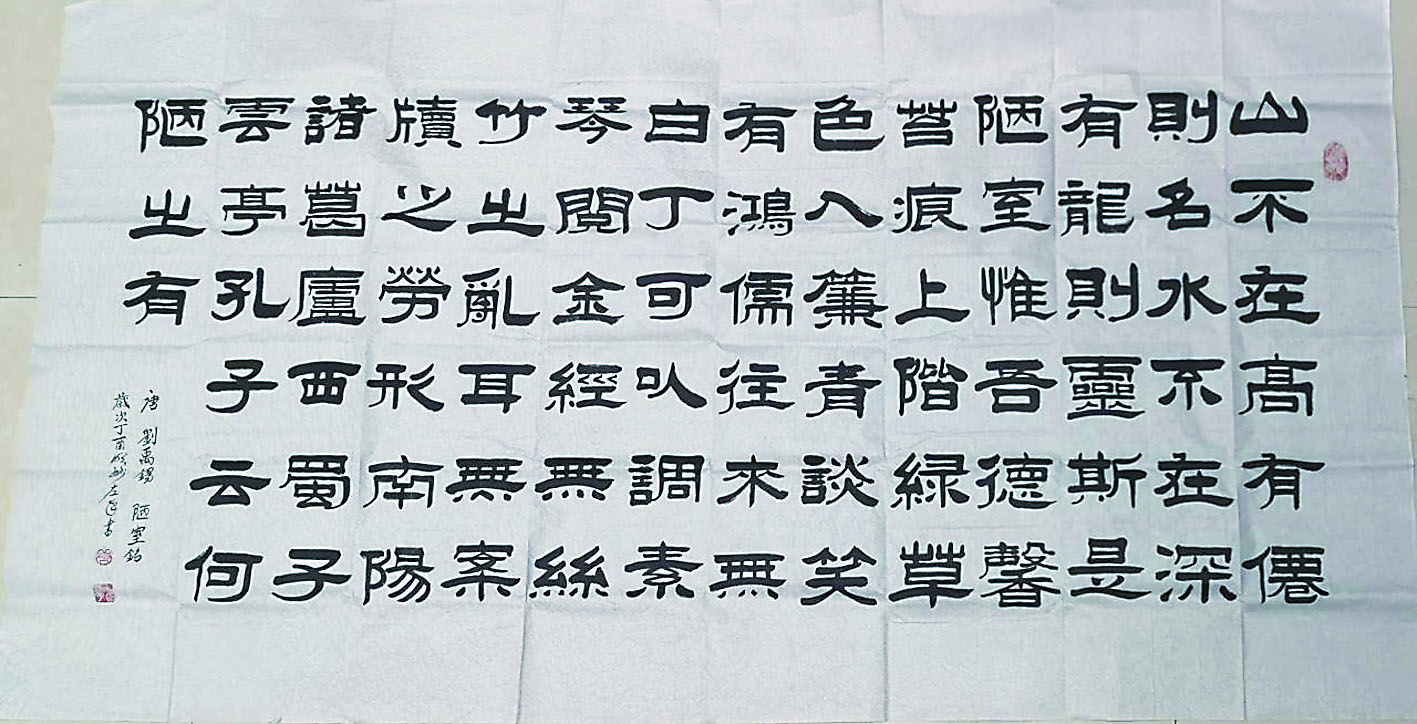 山不在髙有僊
則名水不在深
有龍則靈斯是
陋室惟吾德馨
苔痕上階緑草
色入簾青談笑
有鴻儒往來無
白丁可以調素
琴閱金經無絲
竹之亂耳無案
牘之勞形南陽
諸葛廬西蜀子
雲亭孔子云何
陋之有
唐 劉禹錫 陋室銘
歲次丁酉 左 書